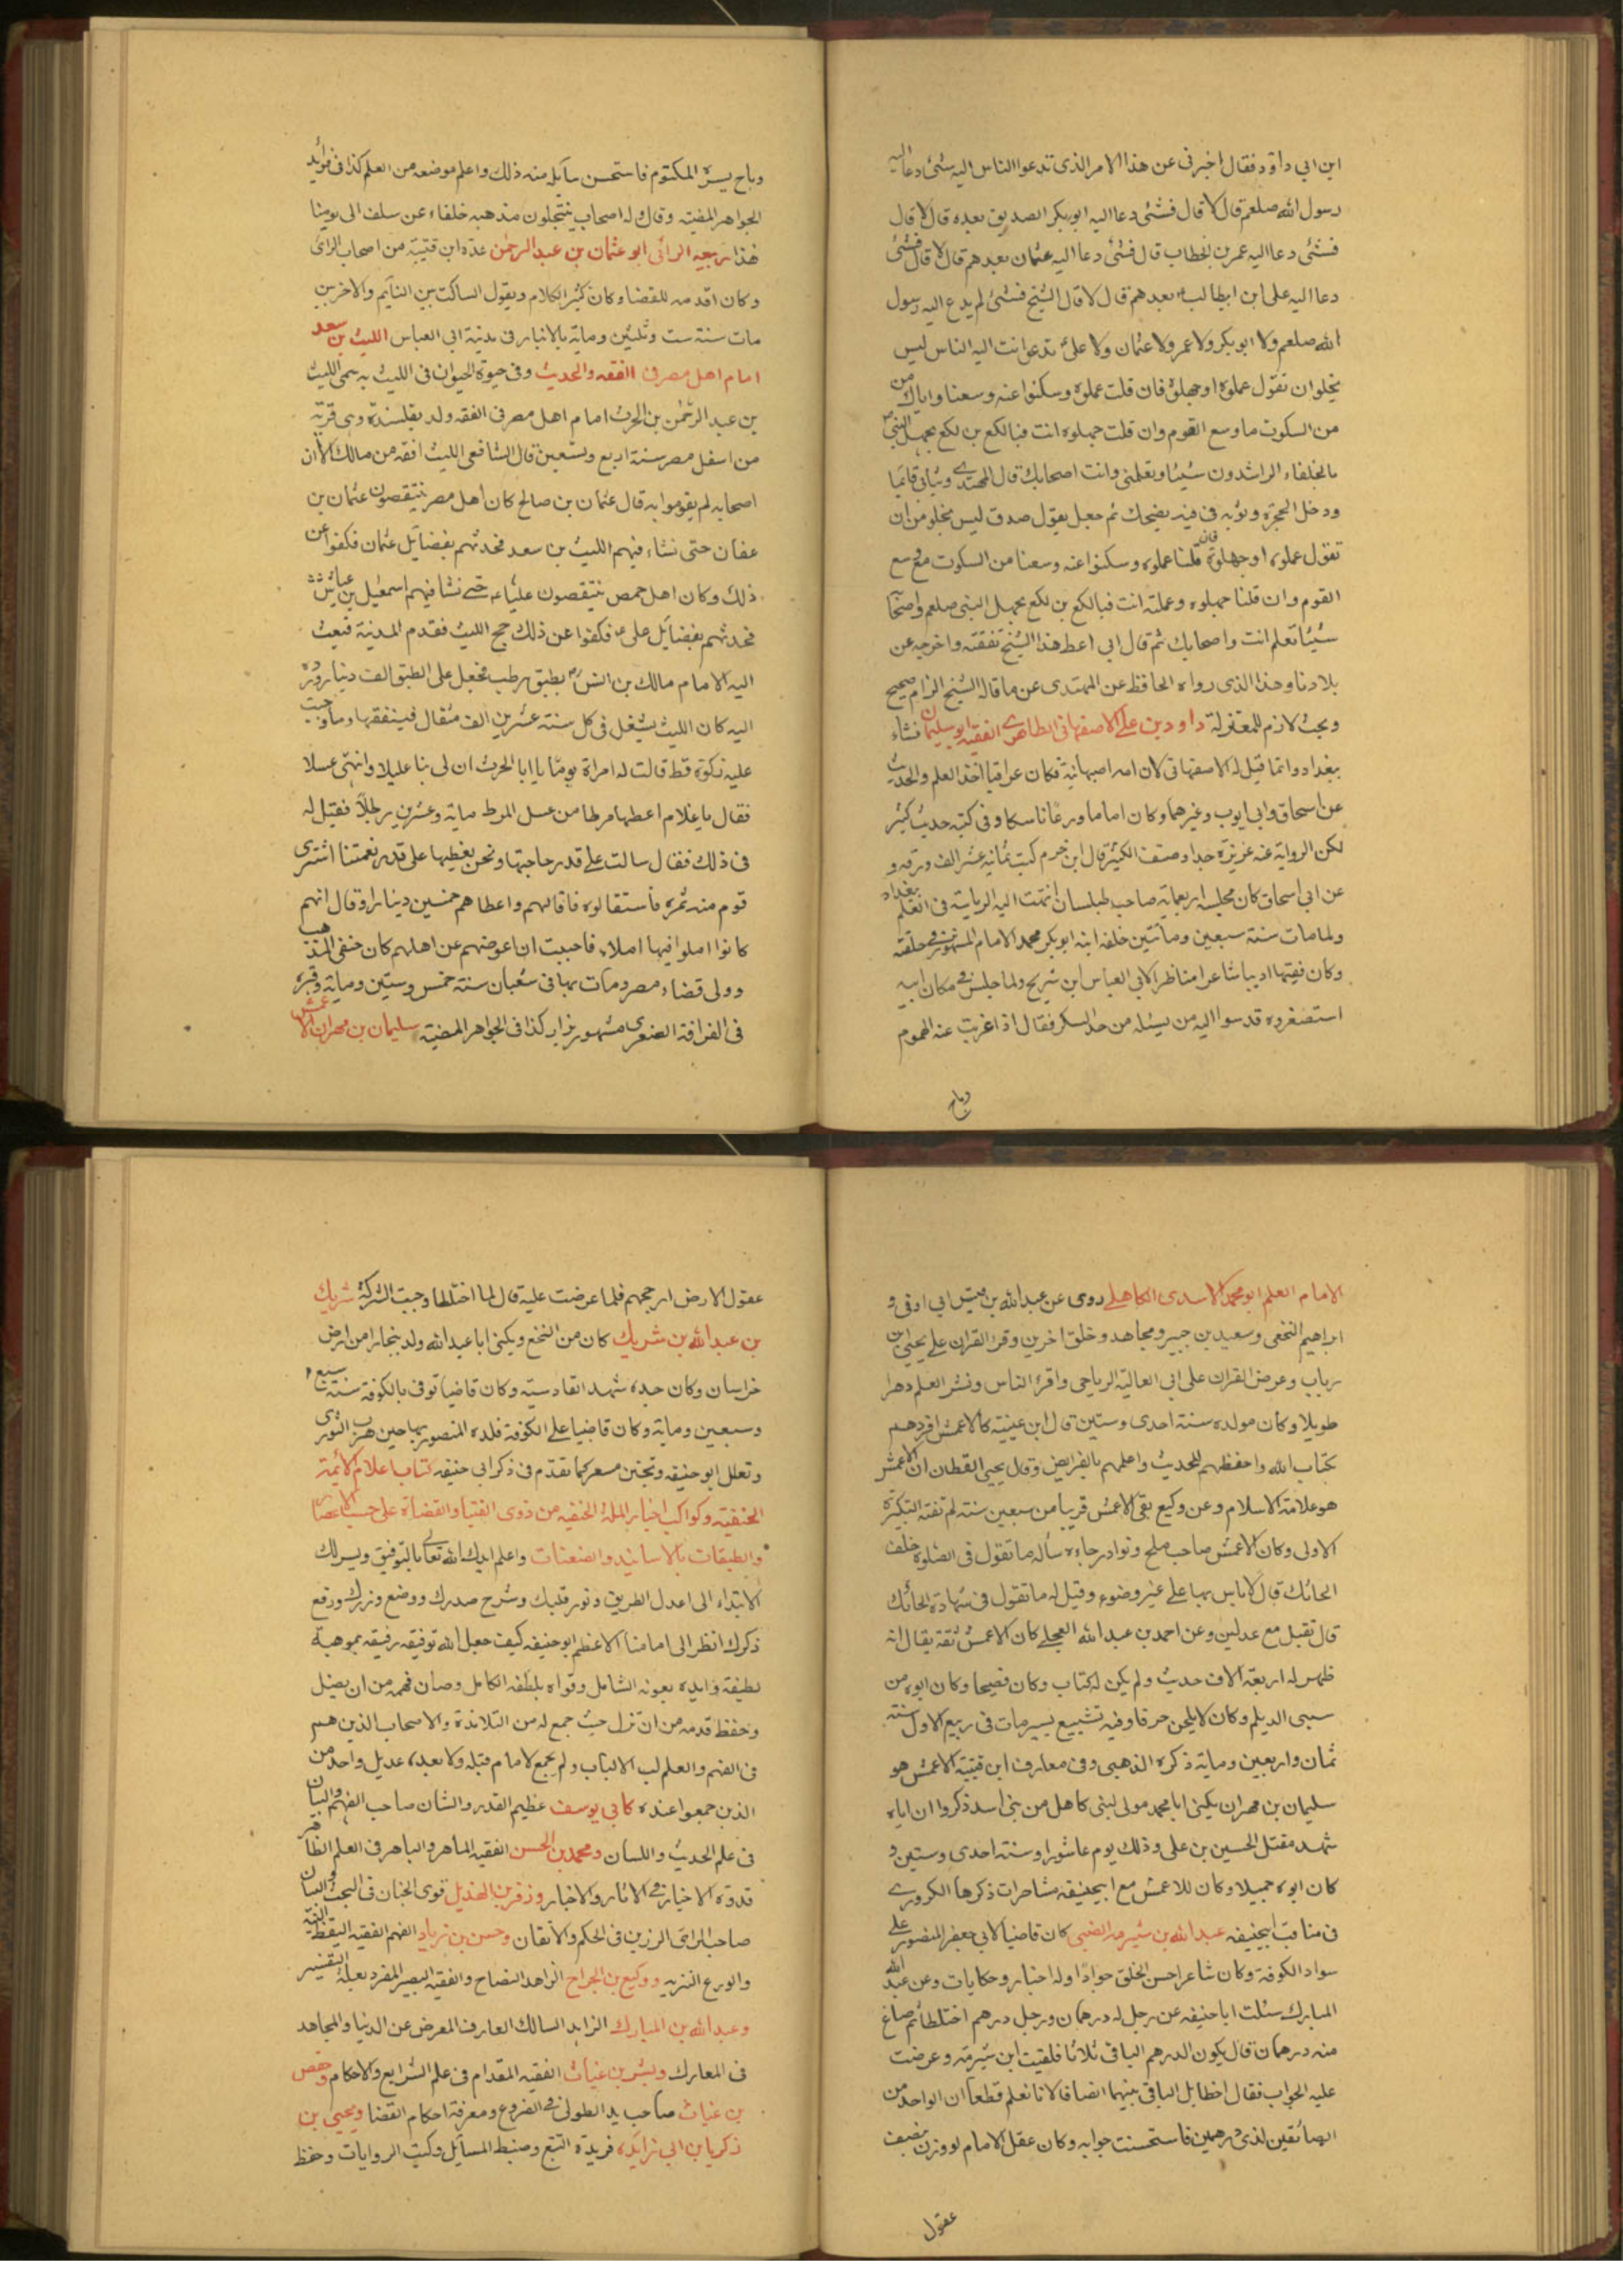 ابن ابي داؤد فقال اخبرنى عن هذا الامر الذى تدعوا الناس اليه شئ دعا اليه
رسول الله صلعم قال لا قال فشئ دعا اليه ابو بكر الصديق بعده قال لا قال
فشئ دعا اليه عمر بن الخطاب قال فشئ دعا اليه عثمان بعدهم قال لا قال فشئ
دعا اليه على ابن ابيطالب بعدهم قال لا قال الشيخ فشئ لم يدع اليه رسول
الله صلعم ولا ابو بكر ولا عمر ولا عثمان ولا على تدعو انت اليه الناس ليس
يخلو ان تقول علموه او جهلوه فان قلت علموه وسكتوا عنه وسعنا واياك من
من السكوت ما وسع القوم وان قلت جهلوه انت فيالكع بن لكع يجهل النبى
والخلفاء الراشدون شيئا وتعلمنى وانت اصحابك قال المهتدى وثبابى قائما
ودخل الحجرة وثوبه فى فيه يضحك ثم جعل يقول صدق ليس يخلو من ان
تقول علموه او جهلوه فان قلنا علموه وسكتوا عنه وسعنا من السكوت ما وسع
القوم وان قلنا جهلوه وعلمته انت فيالكع بن لكع يجهل النبى صلعم واصحابه
شيئا تعلم انت واصحابك ثم قال ابى اعط هذا الشيخ نفقته واخرجه عن
بلادنا وهذا الذى رواه الحافظ عن المهتدى عن ما قاله الشيخ الزام صحيح
وبحث لازم للمعتزلة داود بن على الاصفهانى الظاهرى الفقيه ابو سليمان نشاء
ببغداد وانما قيل له الاصفهانى لان امه اصبهانية فكان عراقيا اخذ العلم والحديث
عن اسحاق وابى ايوب وغيرهما وكان اماما ورعا ناسكا وفى كتبه حديث كثير
لكن الرواية عنه عزيزة جدا وصنف الكثير قال ابن حزم كتب ثمانية عشر الف ورقه و
عن ابى اسحاق كان مجلسه اربعمائة صاحب طيلسان انتهت اليه الرياسة فى العلم ببغداد
ولما مات سنة سبعين ومائتين خلفه ابنه ابو بكر محمد الامام المشهور فى حلقته
وكان فقيها اديبا شاعرا مناظرا لابى العباس ابن شريح ولما جلس فى مكان ابيه
استصغروه قدسوا اليه من يسئله من حد السكر فقال اذا عزبت عنه الهموم
وباح
وباح بسره المكتوم فاستحسن سائله منه ذلك واعلم موضعه من العلم كذا فى فوائد
الجواهر المضيئه وقال له اصحاب ينتحلون مذهبه خلفاء عن سلف الى يومنا
هذا ربيعه الرائى ابو عثمان بن عبد الرحمن عده ابن قتيبة من اصحاب الراى
وكان اقدمه للقضا وكان كثير الكلام ويقول الساكت بين النايم والاخرس
مات سنة ست وثلثين ومائة بالانبار فى مدينة ابى العباس الليث بن سعد
امام اهل مصر فى الفقه والحديث وفى حيوة الحيوان فى الليث به سمى الليث
بن عبد الرحمن بن الحرث امام اهل مصر فى الفقه ولد بقلقشندة وهى قرية
من اسفل مصر سنة اربع وتسعين قال الشافعى الليث افقه من مالك الا ان
اصحابه لم يقوموا به قال عثمان بن صالح كان اهل مصر ينتقصون عثمان بن
عفان حتى نشاء فيهم الليث بن سعد فحدثهم بفضايل عثمان فكفوا عن
ذلك وكان اهل حمص ينتقصون عليا حتى نشا فيهم اسمعيل بن عياش
فحدثهم بفضايل على فكفوا عن ذلك حج الليث فقدم المدينة فبعث
اليه الامام مالك بن انس بطبق رطب فجعل على الطبق الف دينار ورده
اليه كان الليث يشغل فى كل سنة عشرين الف مثقال فينفقها وما وجبت
عليه زكوة قط قالت له امراة يوما يا ابا الحرث ان لى بنا عليلا واشتهى عسلا
فقال يا غلام اعطها مرطا من عسل المرط ماية وعشرين رطلا فقيل له
فى ذلك فقال سالت على قدر حاجتها ونحن نعطيها على قدر نعمتنا اشترى
قوم منه ثمرة فاستقالوه فاقالهم واعطاهم خمسين دينارا وقال انهم
كانوا املوا فيها املاء فاحببت ان اعوضهم عن املهم كان حنفى المذهب
وولى قضاء مصر ومات بها فى شعبان سنة خمس وستين وماية وقبره
فى القرافة الصغرى مشهور يزار كذا فى الجواهر المضيئه سليمان بن مهران الاعمش
الامام العلم ابو محمد الاسدى الكاهلى روى عن عبد الله بن ابى اوفى و
ابراهيم النخعى وسعيد بن جبير ومجاهد وخلق اخرين وقرا القران على يحيى بن
رباب وعرض القران على ابى العالية الرياحى واقرا الناس ونشر العلم دهرا
طويلا وكان مولده سنة احدى وستين قال ابن عيينة كان الاعمش اقرهم
بكتاب الله واحفظهم للحديث واعلمهم بالفرايض وقال يحيى القطان ان الاعمش
هو علامة الاسلام وعن وكيع بقى الاعمش قريبا من سبعين سنة لم تفته التكبيرة
الاولى وكان الاعمش صاحب ملح ونوادر جاءه سأله ما تقول فى الصلوة خلف
الحائك قال لا باس بها على غير وضوء وقيل له ما تقول فى شهادة الحائك
قال تقبل مع عدلين وعن احمد بن عبد الله العجلى كان الاعمش ثقة يقال انه
ظهر له اربعة الاف حديث ولم يكن له كتاب وكان فصيحا وكان ابوه من
سبى الديلم وكان لا يلحن حرفا وفيه تشييع يسير مات فى ربيع الاول سنة
ثمان واربعين وماية ذكره الذهبى وفى معارف ابن قتيبة الاعمش هو
سليمان بن مهران يكنى ابا محمد مولى لبنى كاهل من بنى اسد ذكروا ان اباه
شهد مقتل الحسين بن على وذلك يوم عاشورا وسنة احدى وستين و
كان ابوه حميلا وكان للاعمش مع ابيحنيفه مشاجرات ذكرها الكرورى
فى مناقب ابيحنيفه عبد الله بن شبرمه الضبى كان قاضيا لابى جعفر المنصور على
سواد الكوفة وكان شاعرا حسن الخلق جوادا وله اخبار وحكايات وعن عبد الله
المبارك سئلت ابا حنيفه عن رجل له درهمان ورجل درهم اختلطا ثم ضاع
منه درهمان قال يكون الدرهم الباقى ثلاثا فلقيت ابن شبرمه وعرضت
عليه الجواب فقال اخطا بل الباقى بينهما انصافا لانا نعلم قطعا ان الواحد من
الضائعين لذى درهمين فاستحسنت جوابه وكان عقل الامام لو وزن بنصف
عقول
عقول الارض لرجحهم فلما عرضت عليه قال لما اختلطا وجبت الشركة شريك
بن عبد الله بن شريك كان من النخع ويكنى ابا عبد الله ولد ببخارا من ارض
خراسان وكان جده شهد القادسية وكان قاضيا توفى بالكوفة سنة سبع
وسبعين وماية وكان قاضيا على الكوفة قلده المنصور بها حين هرب الثورى
وتعلل ابو حنيفه وتجنن مسعر كما تقدم فى ذكر ابى حنيفه كتاب اعلام الائمة
الحنفيه وكواكب اخيار الملة الحنفيه من ذوى الفتيا والقضاة على حسب الاعصار
والطبقات بالاسانيد والضعنات واعلم ايدك الله تعالى بالتوفيق ويسر لك
الابتداء الى اعدل الطريق ونور قلبك وشرح صدرك ووضع وزرك ورفع
ذكرك انظر الى امامنا الاعظم ابو حنيفه كيف جعل الله توفيقه رفيقه بموهبة
لطيفة وايده بعونه الشامل وقواه بلطفه الكامل وصان فهمه من ان يضل
وحفظ قدمه من ان تزل حيث جمع له من التلامذة والاصحاب الذين هم
فى الفهم والعلم لب الالباب ولم يجمع لامام قبله ولا بعده عديل واحد من
الذين جمعوا عنده كابى يوسف عظيم القدر والشان صاحب الفهم والبيان
فى علم الحديث واللسان ومحمد بن الحسن الفقيه الماهر والباهر فى العلم الظاهر
قدوة الاخيار فى الاثار والاخبار وزفر بن الهذيل قوى الجنان فى البحث والبيان
صاحب الراى الرزين فى الحكم والاتقان وحسن بن زياد الفهم الفقيه اليقظ النبيه
والورع النزيه ووكيع بن الجراح الزاهد النصاح والفقيه البصير المفرد بعلم التفسير
وعبد الله بن المبارك الزاهد السالك العارف المعرض عن الدنيا والمجاهد
فى المعارك وبشر بن غياث الفقيه المقدام فى علم الشرايع والاحكام وحفص
بن غياث صاحب يد الطولى فى الفروع ومعرفة احكام القضا ويحيى بن
زكريا بن ابى زايده فريدة التبع وضبط المسايل وكتب الروايات وحفظ